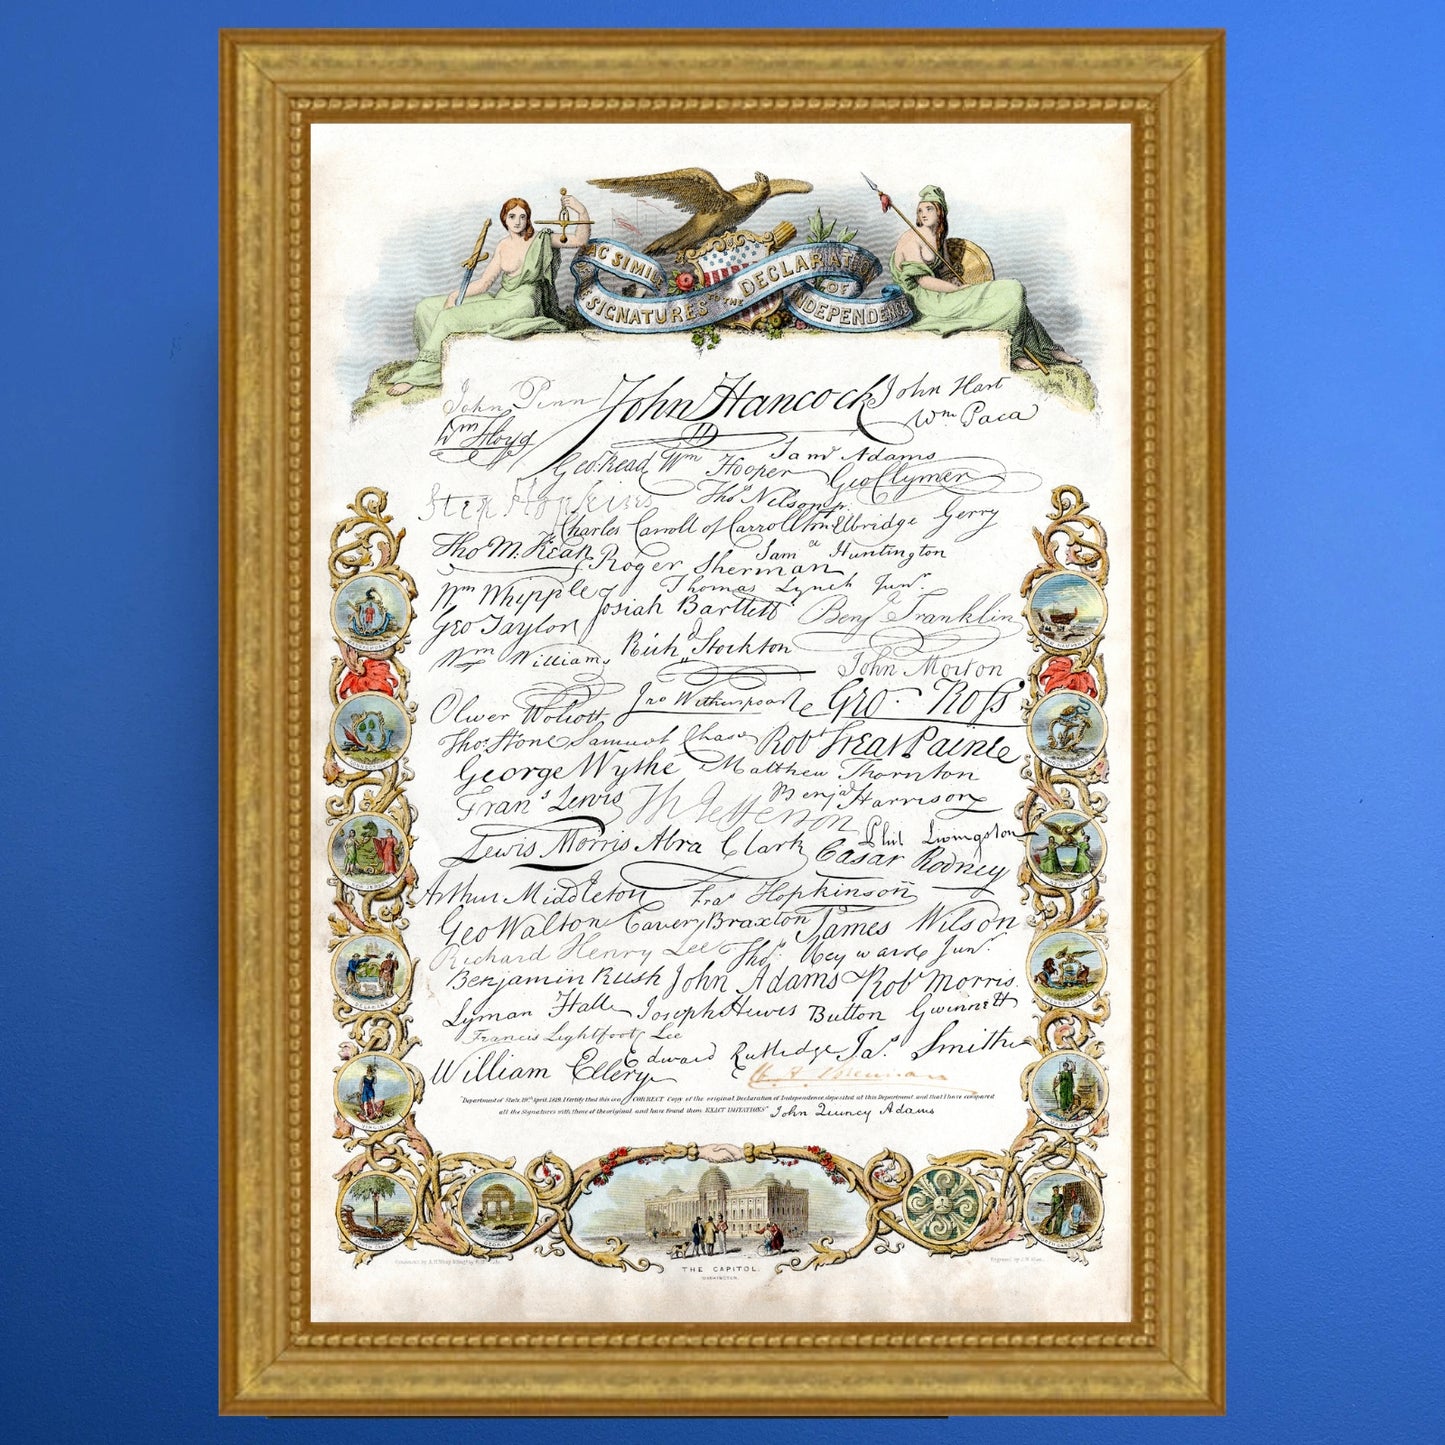 FAC SIMILE
OF THE SIGNATURES TO THE DECLARATION OF INDEPENDENCE
John Penn John Hancock John Hart
Wm Floyd Wm Paca
Geo. Read Wm Hooper Sam Adams
Geo Clymer
Step Hopkins Thos Nelson jr.
Charles Carroll of Carrollton Elbridge Gerry
Tho M. Kean Roger Sherman Saml Huntington
Wm Whipple Thomas Lynch Junr.
Geo Taylor Josiah Bartlett Benj Franklin
Wm Williams Richd Stockton John Morton
Oliver Wolcott Jno Witherspoon Geo. Ross
Thos. Stone Samuel Chase Robt Treat Paine
George Wythe Matthew Thornton
Frans Lewis Th Jefferson Benja Harrison
Lewis Morris Abra Clark Phil Livingston
Cæsar Rodney
Arthur Middleton Fras Hopkinson
Geo Walton Carter Braxton James Wilson
Richard Henry Lee Thos. Heyward Junr.
Benjamin Rush John Adams Robt Morris
Lyman Hall Joseph Hewes Button Gwinnett
Francis Lightfoot Lee
William Ellery Edward Rutledge Jas. Smith
"Department of State, 19th April, 1819. I Certify that this is a CORRECT Copy of the original Declaration of Independence deposited at this Department and that I have compared
all the Signatures with those of the original and have found them EXACT IMITATIONS" John Quincy Adams
NEW JERSEY
NEW YORK
DELAWARE
PENNSYLVANIA
VIRGINIA
MARYLAND
GEORGIA
THE CAPITOL.
WASHINGTON.